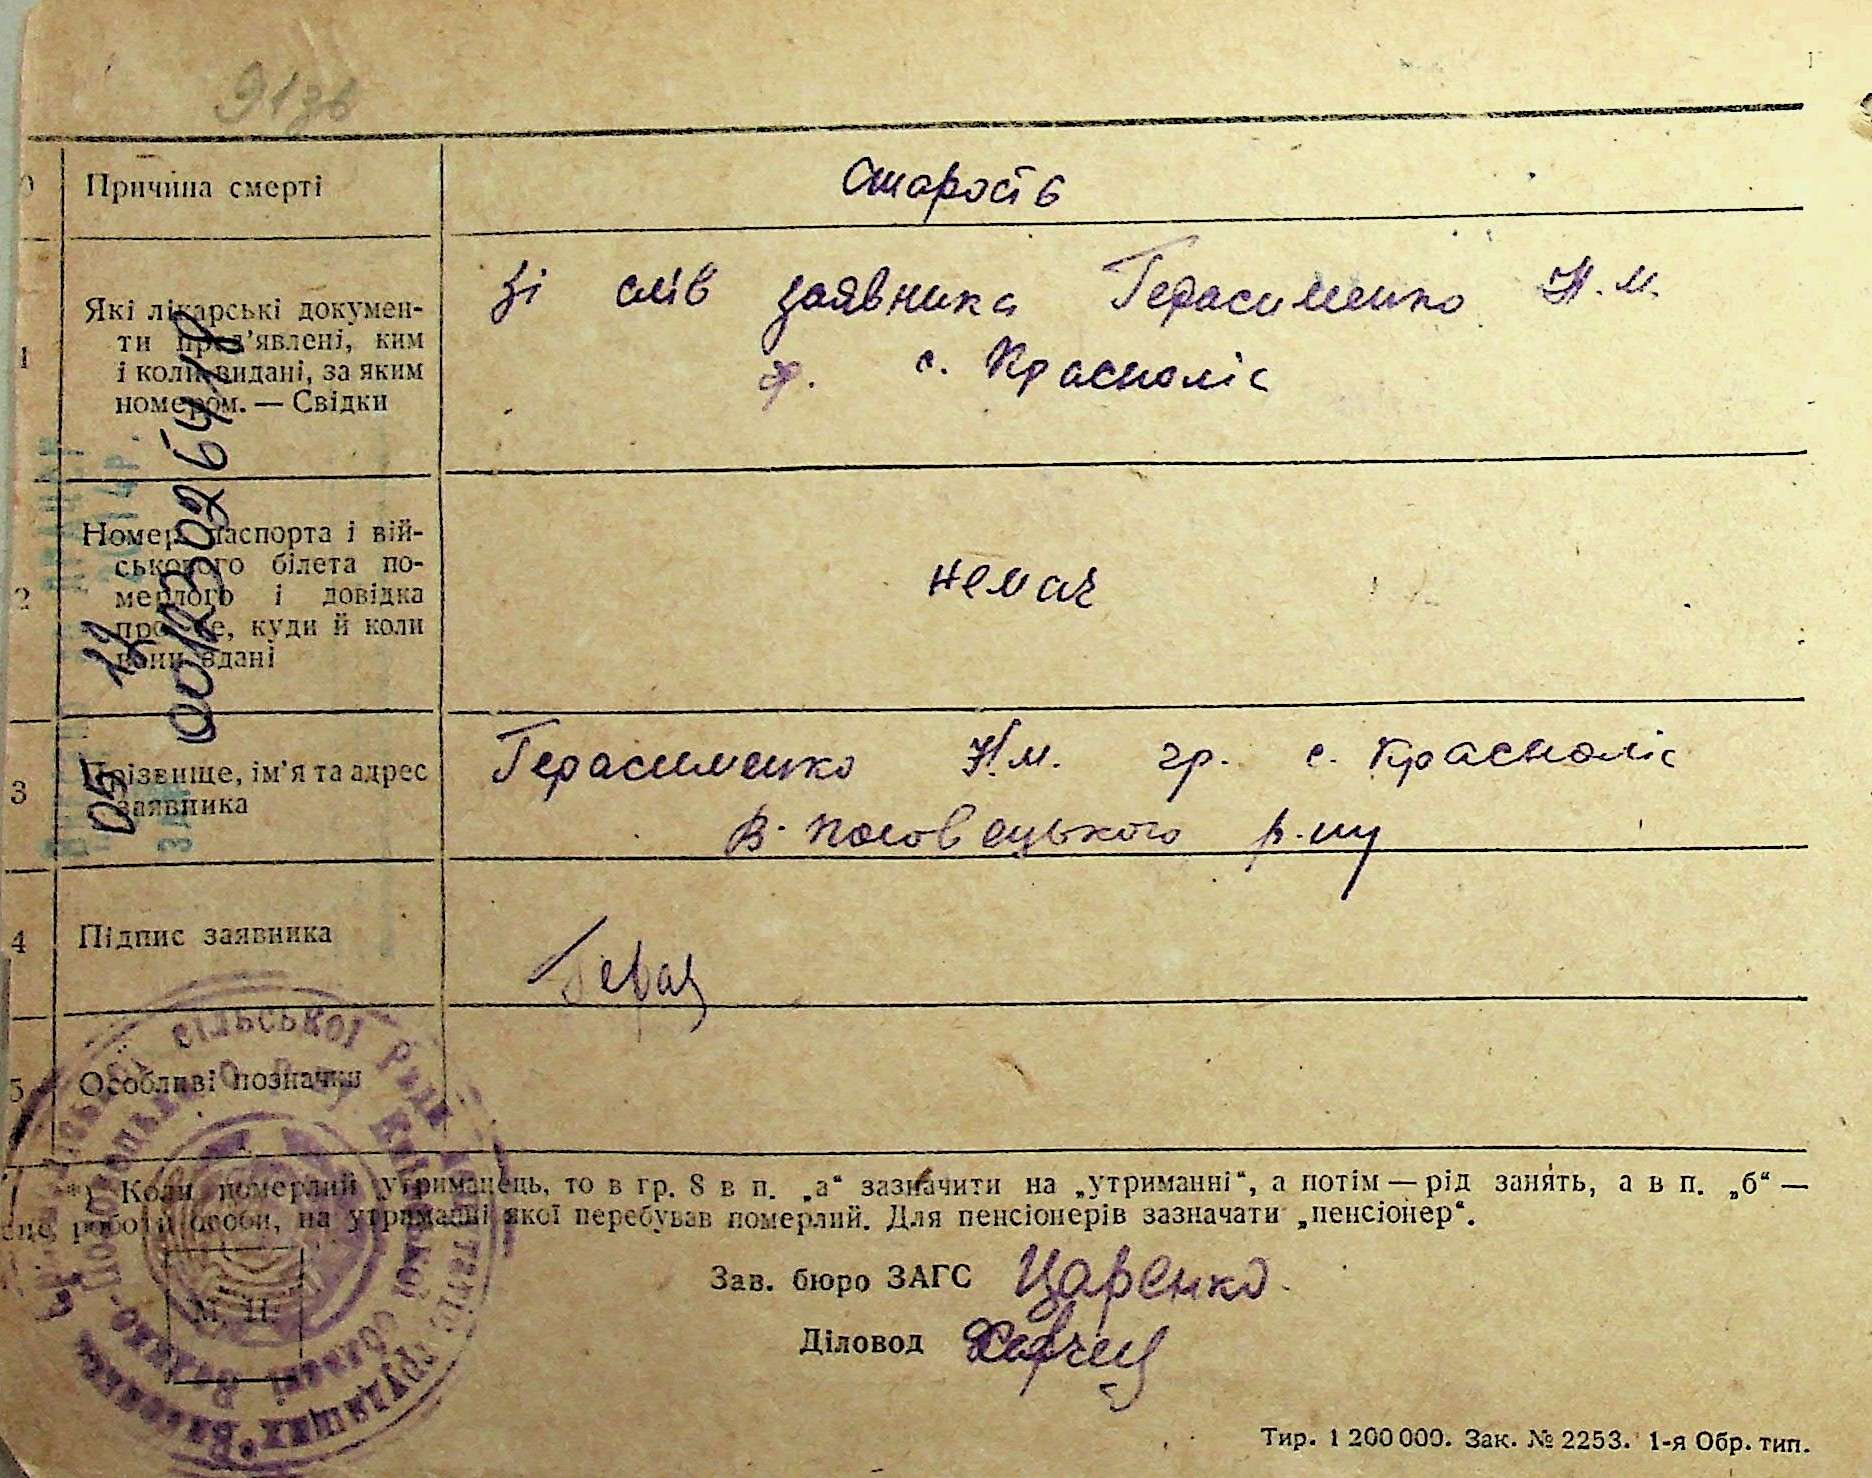 Причина смерті
Старость
1
Які лікарські докумен-
ти пред'явлені, ким
і коли видані, за яким
номером. — Свідки
Зі слів заявника Герасименко Н.М.
с. Красноліс
2
Номер паспорта і вій-
ськового білета по-
мерлого і довідка
про це, куди й коли
вони здані
немає
3
Прізвище, ім'я та адрес
заявника
Герасименко Н.М. гр. с. Красноліс
В-Половецького р-ну
4
Підпис заявника
Герас
5
Особливі позначки
*) Коли померлий утриманець, то в гр. 8 в п. „а“ зазначити на „утриманні“, а потім — рід занять, а в п. „б“ —
роботи особи, на утриманні якої перебував померлий. Для пенсіонерів зазначати „пенсіонер“.
М. П.
Зав. бюро ЗАГС Царенко
Діловод
Тир. 1 200 000. Зак. № 2253. 1-я Обр. тип.
сільської Ради депутатів трудящих
Київської області